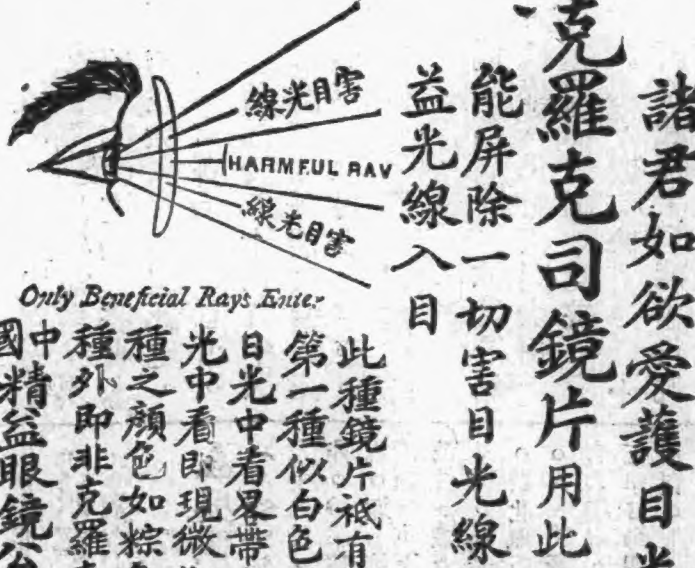 諸君如欲愛護目光
克羅克司鏡片用此
能屏除一切害目光線
益光線入目
害目光線
HARMFUL RAY
害目光線
Only Beneficial Rays Enter
此種鏡片祗有
第一種似白色
日光中看畧帶
光中看即現微
種之顏色如粽
種外即非克羅
中國精益眼鏡公